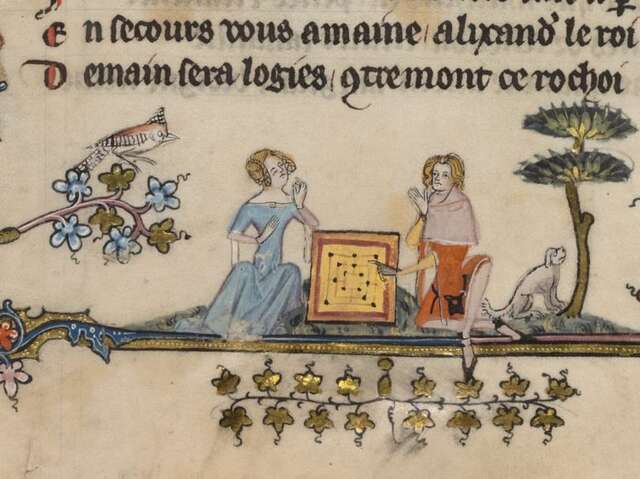 En secours vous amaine / alixand' le roi
Demain sera logies / q̃tremont ce rochoi